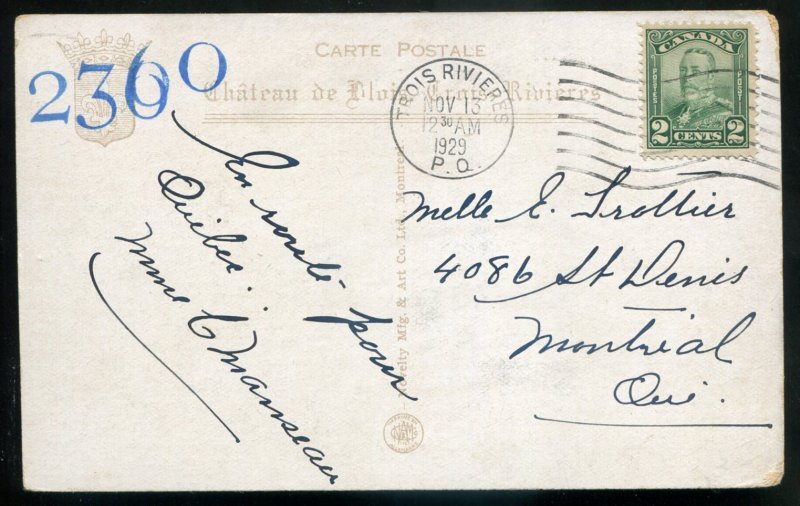 CARTE POSTALE
Château de Blois, Trois Rivières
2360
TROIS RIVIERES
NOV 13
12 30 AM
1929
P.Q.
CANADA
POSTES
POSTAGE
2 CENTS 2
En route pour
Québec.
Mme C Manseau
Novelty Mfg. & Art Co. Ltd., Montreal
Melle E. Trottier
4086 St Denis
Montréal
Qué.